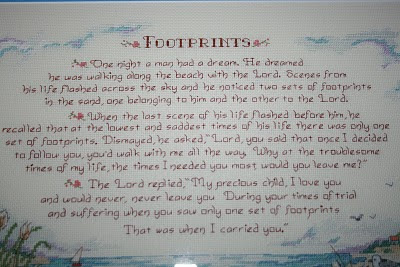 FOOTPRINTS
One night a man had a dream. He dreamed
he was walking along the beach with the Lord. Scenes from
his life flashed across the sky and he noticed two sets of footprints
in the sand, one belonging to him and the other to the Lord.
When the last scene of his life flashed before him, he
recalled that at the lowest and saddest times of his life there was only one
set of footprints. Dismayed, he asked, "Lord, you said that once I decided
to follow you, you'd walk with me all the way. Why at the troublesome
times of my life, the times I needed you most, would you leave me?"
The Lord replied, "My precious child, I love you
and would never, never leave you During your times of trial
and suffering when you saw only one set of footprints
That was when I carried you."